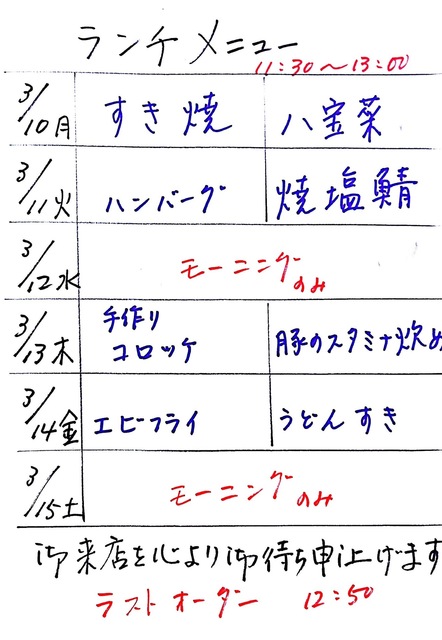 ランチメニュー
11:30〜13:00
3/10月 すき焼 八宝菜
3/11火 ハンバーグ 焼塩鯖
3/12水 モーニングのみ
3/13木 手作りコロッケ 豚のスタミナ炊め
3/14金 エビフライ うどんすき
3/15土 モーニングのみ
御来店を心より御待ち申上げます
ラストオーダー 12:50